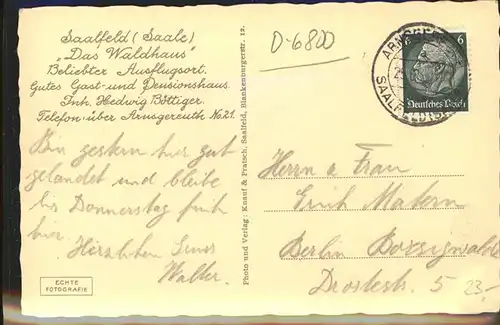 Saalfeld (Saale)
„Das Waldhaus"
Beliebter Ausflugsort.
Gutes Gast- und Pensionshaus.
Inh. Hedwig Böttiger.
Telefon: über Arnsgereuth No. 21.
Bin gestern hier gut
gelandet und bleibe
bis Donnerstag früh
hier. Herzlichen Gruss
Walter.
ECHTE
FOTOGRAFIE
Photo und Verlag: Knauf & Pratsch, Saalfeld, Blankenburgerstr. 12.
D-6800
ARNSG
SAALFELD
6
Deutsches Reich
Herrn u. Frau
Erich Matern
Berlin Borsigwalde
Drostestr. 5
23,-